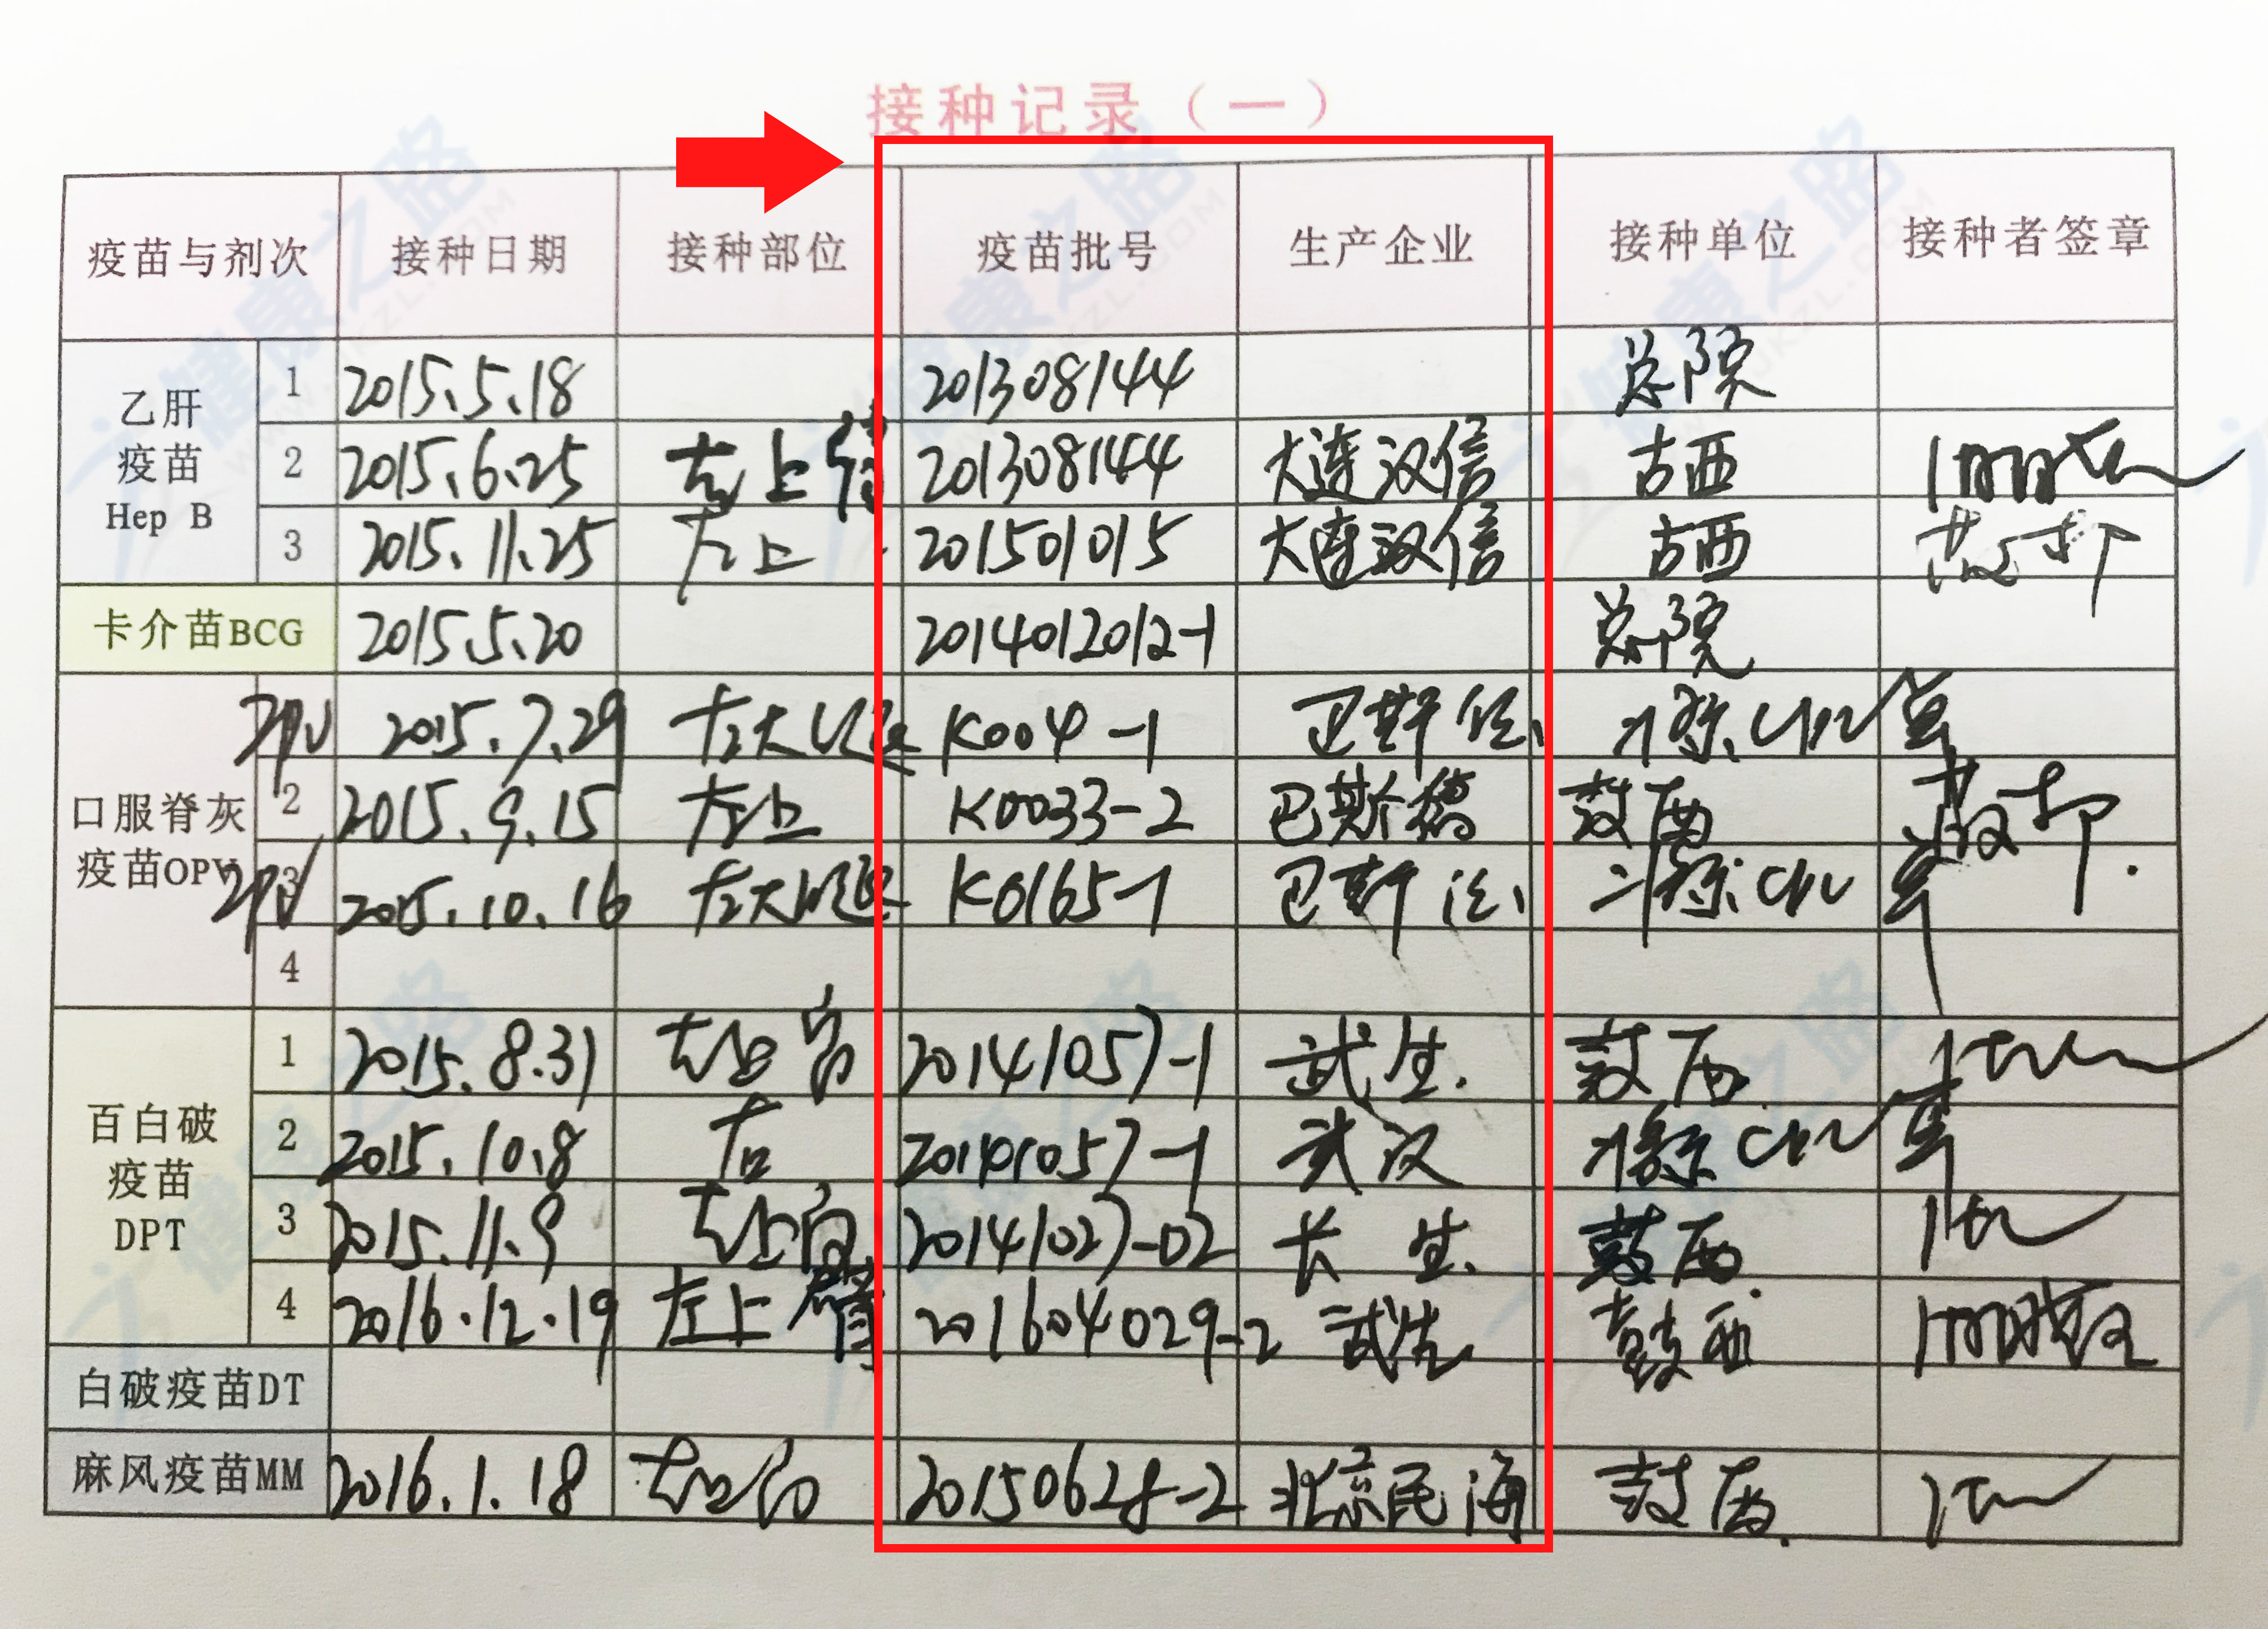 接种记录（一）
疫苗与剂次 接种日期 接种部位 疫苗批号 生产企业 接种单位 接种者签章
乙肝疫苗 Hep B
1 2015.5.18 201308144 总院
2 2015.6.25 左上臂 201308144 大连汉信 古西
3 2015.11.25 左上 201501015 大连汉信 古西
卡介苗BCG 2015.5.20 2014012012-1 总院
口服脊灰疫苗OPV
IPV 2015.7.29 左大腿 K004-1 巴斯德
2 2015.9.15 左上 K0033-2 巴斯德 鼓西
IPV 3 2015.10.16 左大腿 K0165-1 巴斯德
4
百白破疫苗 DPT
1 2015.8.31 20141057-1 武生. 鼓西
2 2015.10.8 右 201401057-1 武汉
3 2015.11.9 20141027-02 长生. 鼓西
4 2016.12.19 左上臂 201604029-2 武生 鼓西
白破疫苗DT
麻风疫苗MM 2016.1.18 20150628-2 北京民海 鼓西.
健康之路
WWW.JKZL.COM